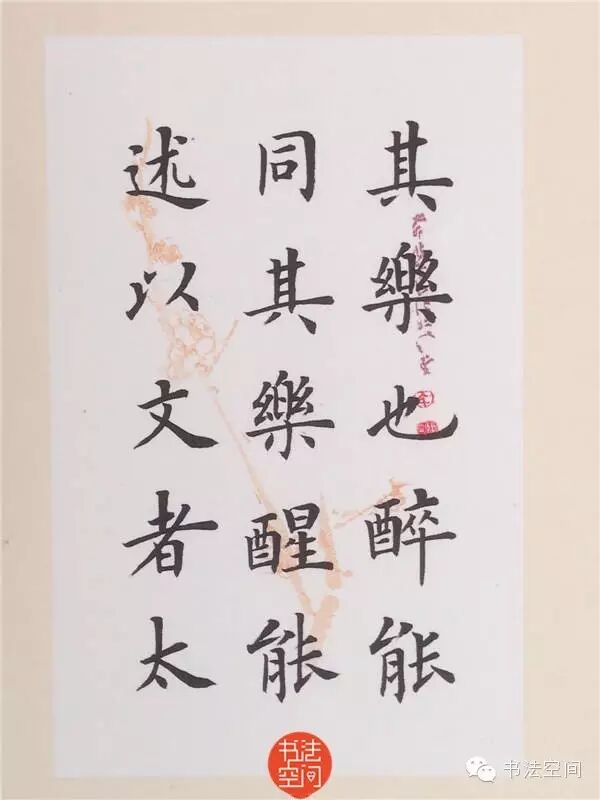 其樂也醉能
同其樂醒能
述以文者太
书法空间
书法空间